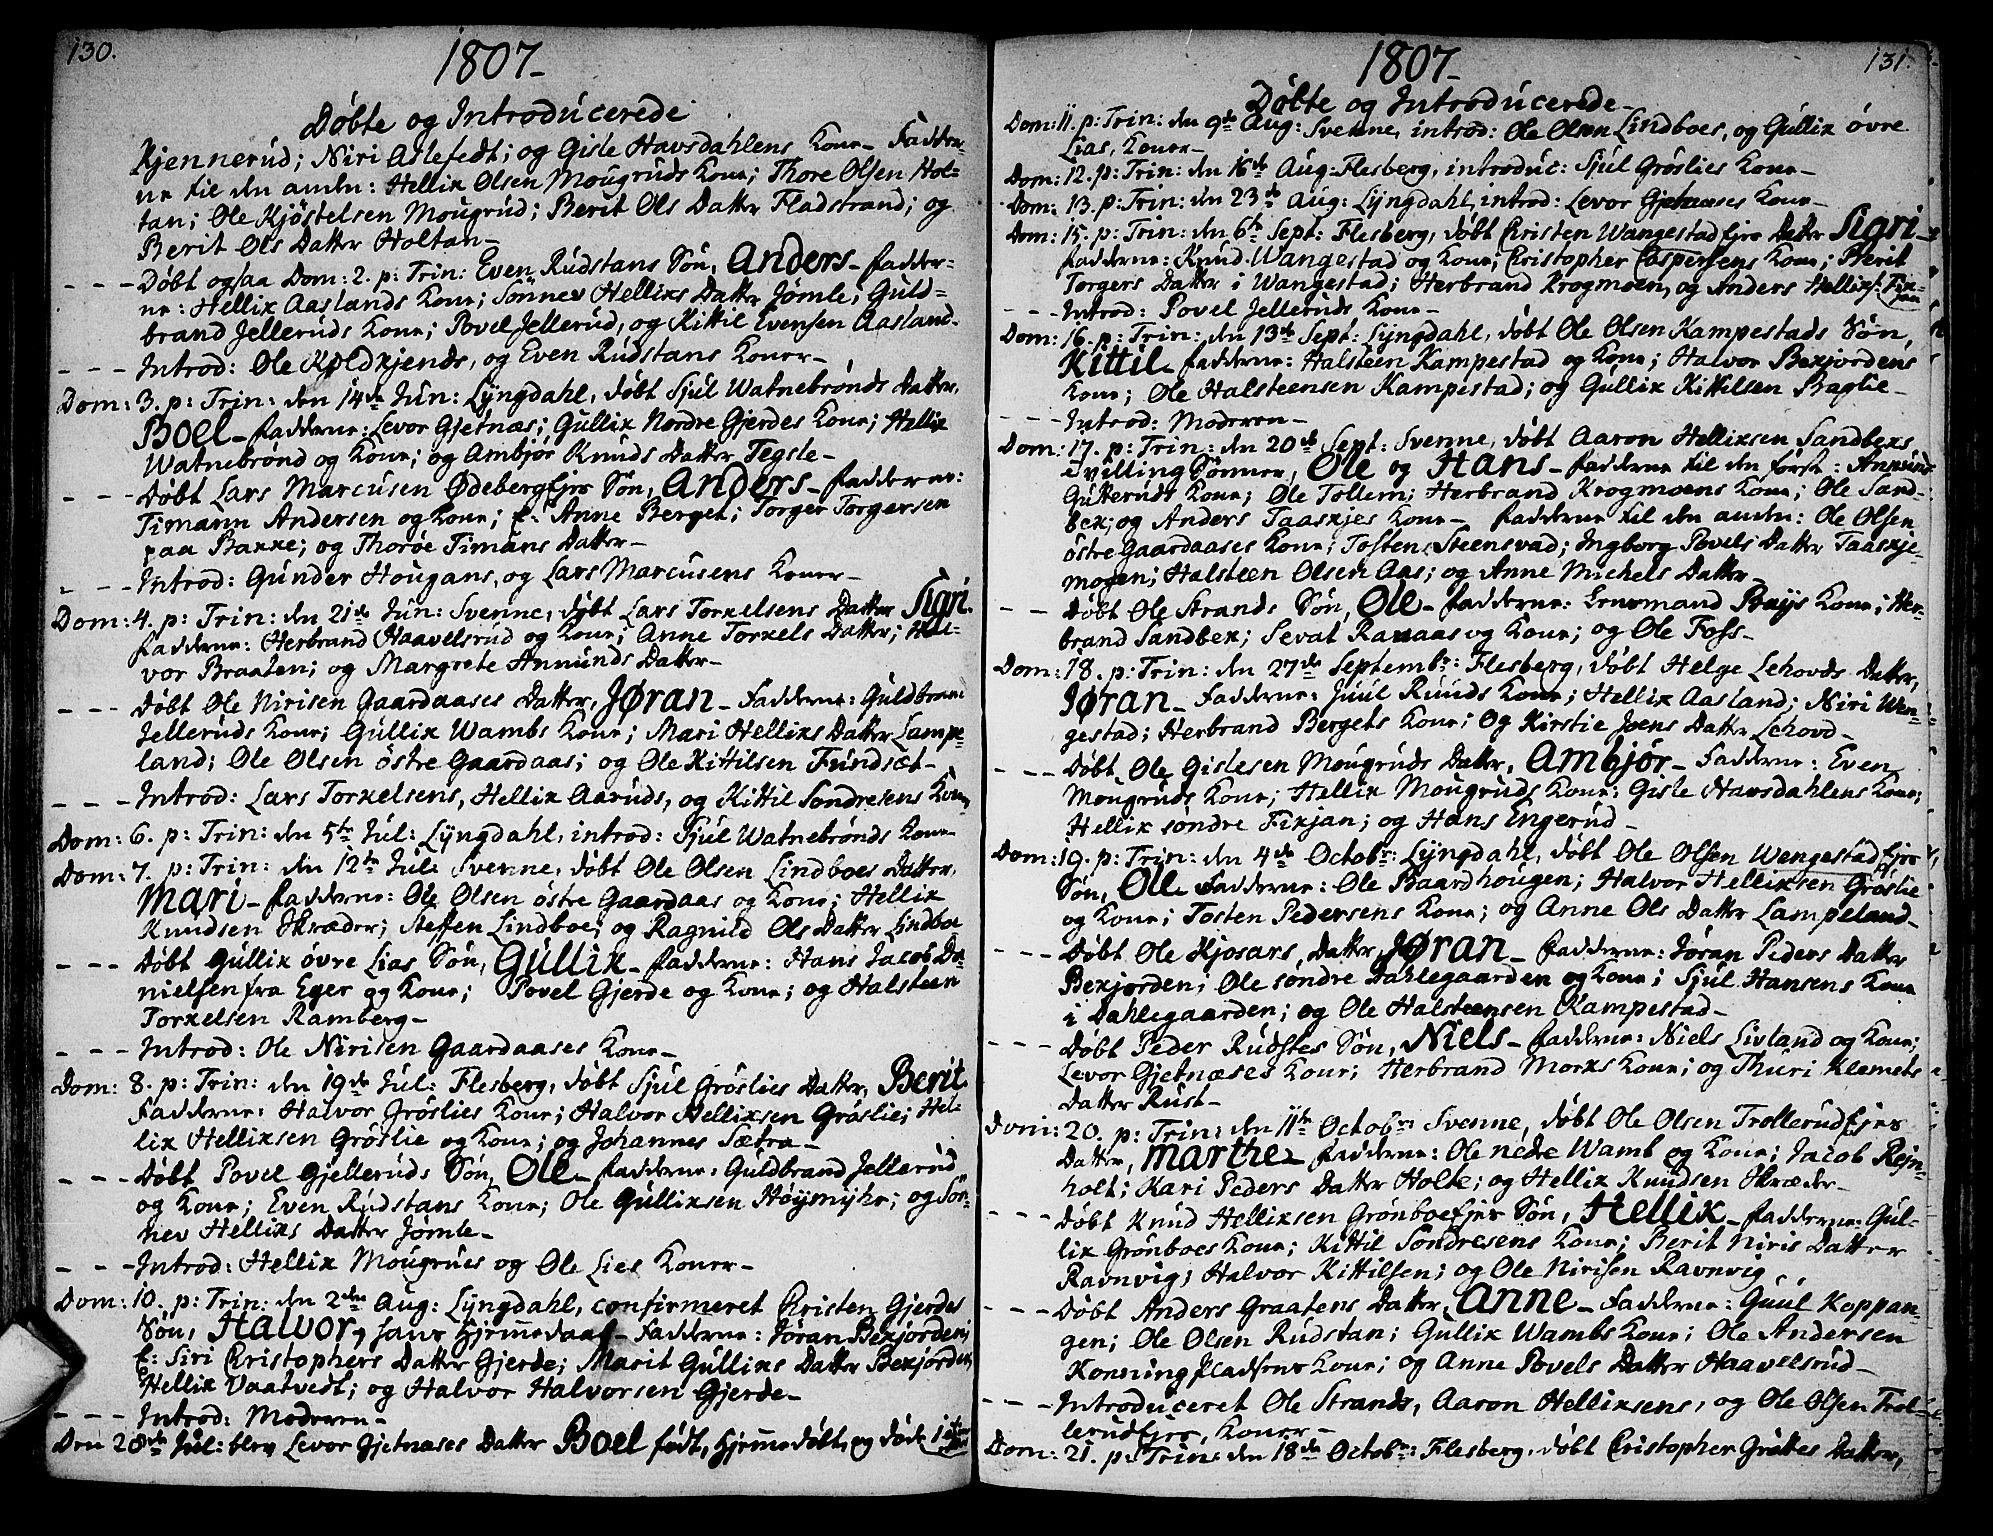 130.
1807
Døbte og Introducerede
Kjennerud; Niri Aslefedt; og Gisle Havsdahlens Kone_ Fadder-
ne til den anden: Hellik Olsen Mougruds Kone; Thore Olsen Hol-
tan; Ole Kjøstelsen Mougrud; Berit Ols Datter Fladstrand; og
Berit Ols Datter Holtan_
- - - Døbt ogsaa Dom: 2. p: Trin: Even Rudstans Søn, Anders_ Fadder-
ne: Hellik Aaslands Kone; Sønnev Helliks Datter Jømle; Guld-
brand Jelleruds Kone; Povel Jellerud, og Kittil Evensen Aasland_
- - - Introd: Ole Koldkjends, og Even Rudstans Koner_
Dom: 3. p: Trin: den 14de Jun: Lyngdahl, døbt Sjul Watnebrønds Datter,
Boel_ Fadderne: Levor Gjetnæs; Gullik Nordre Gjerdes Kone; Hellik
Watnebrønd og Kone; og Ambjør Knuds Datter Tegsle_
- - - Døbt Lars Marcusen Ødebergejes Søn, Anders_ Fadderne:
Timann Andersen og Kone; E: Anne Berget; Torger Torgersen
paa Bakke; og Thorøe Timans Datter_
- - - Introd: Gunder Hougans, og Lars Marcusens Koner_
Dom: 4. p: Trin: den 21de Jun: Svenne, døbt Lars Torkelsens Datter Sigri.
Fadderne: Herbrand Haavelsrud og Kone; Anne Torkels Datter; Hal-
vor Braaten; og Margrete Annunds Datter_
- - - Døbt Ole Nirisen Gaardaases Datter, Jøran_ Fadderne: Guldbrand
Jelleruds Kone; Gullik Wambs Kone; Mari Helliks Datter Lampe-
land; Ole Olsen østre Gaardaas; og Ole Kittilsen Fundsæt_
- - - Introd: Lars Torkelsens, Hellik Aaruds, og Kittil Sondresens Koner
Dom: 6. p: Trin: den 5te Jul: Lyngdahl, introd: Sjul Watnebrønds Kone
Dom: 7. p: Trin: den 12te Juli Svenne, døbt Ole Olsen Lindboes Datter,
Mari_ Fadderne: Ole Olsen østre Gaardaas og Kone; Hellik
Knudsen Skræder; Steffen Lindboe; og Ragnild Ols Datter Lindboe
- - - Døbt Gullik øvre Lias Søn, Gullik_ Fadderne: Hans Jacob Da-
nielsen fra Eger og Kone; Povel Gjerde og Kone; og Halsteen
Torkelsen Ramberg_
- - - Introd: Ole Nirisen Gaardaases Kone_
Dom: 8. p: Trin: den 19de Jul: Flesberg, døbt Sjul Grøslies Datter, Berit.
Fadderne: Halvor Grøslies Kone; Halvor Helliksen Grøslie; Hel-
lik Helliksen Grøslie og Kone; og Johannes Sætra_
- - - Døbt Povel Gjelleruds Søn, Ole_ Fadderne: Guldbrand Jellerud
og Kone; Even Rudstans Kone; Ole Gulliksen Høymyhr; og Søn-
nev Helliks Datter Jømle_
- - - Introd: Hellik Mougrues og Ole Lies Koner_
Dom: 10. p: Trin: den 2den Aug: Lyngdahl, confirmeret Kristen Gjerdes
Søn, Halvor, hans Hjemmedaab_ Fadderne: Jøran Bekjorden;
E: Siri Cristophers Datter Gjerde; Marit Gulliks Datter Bekjorden;
Hellik Vaatvedt; og Halvor Halvorsen Gjerde_
- - - Introd: Moderen_
Den 28de Jul: blev Levor Gjetnæses Datter Boel født, hjemmedøbt, og døde
131.
1807
Døbte og Introducerede_
Dom: 11. p: Trin: den 9de Aug: Svenne, introd: Ole Olsen Lindboes, og Gullik øvre
Lias, Koner_
Dom: 12. p: Trin: den 16de Aug: Flesberg, introduc: Sjul Grøslies Kone_
Dom: 13. p: Trin: den 23de Aug: Lyngdahl, introd: Levor Gjetnæses Kone_
Dom: 15. p: Trin: den 6te Sept: Flesberg, døbt Cristen Wangestadejes Datter Sigri_
Fadderne: Knud Wangestad og Kone; Cristopher Caspersens Kone; Berit
Torgers Datter i Wangestad; Herbrand Krogmoen, og Anders Helliks: Fik-
jan
- - - Introd: Povel Jelleruds Kone_
Dom: 16. p: Trin: den 13de Sept: Lyngdahl, døbt Ole Olsen Kampestads Søn,
Kittil_ Fadderne: Halsteen Kampestad og Kone; Halvor Bekjordens
Kone; Ole Halsteensen Kampestad; og Gullik Kittilsen Baglie_
- - - Introd: Moderen_
Dom: 17. p: Trin: den 20de Sept: Svenne, døbt Aaron Helliksen Sandbeks
Tvilling Sønner, Ole og Hans_ Fadderne til den første: Annund
Gutteruds Kone; Ole Tollem; Herbrand Krogmoens Kone; Ole Sand-
bek; og Anders Taaskjes Kone_ Fadderne til den anden: Ole Olsen
østre Gaardaases Kone; Tosten Steensvad; Ingborg Povels Datter Taaskje-
mogen; Halsteen Olsen Aas; og Anne Michels Datter_
- - Døbt Ole Strands Søn, Ole_ Fadderne: Ernsmand Bays Kone; Her-
brand Sandbek; Sevat Ravaas og Kone; og Ole Foss_
Dom: 18. p: Trin: den 27de Septembr: Flesberg, døbt Helge Lehovds Datter,
Jøran_ Fadderne: Juul Ruuds Kone; Hellik Aasland; Niri Wan-
gestad; Herbrand Bergets Kone; og Kirstie Joens Datter Lehovd_
- - - Døbt Ole Gislesen Mougruds Datter, Ambjør_ Fadderne: Even
Mougruds Kone; Hellik Mougruds Kone; Gisle Havsdahlens Kone;
Hellik søndre Fikjan; og Hans Engerud_
Dom: 19. p: Trin: den 4de Octobr: Lyngdahl, døbt Ole Olsen Wangestadejes
Søn, Ole_ Fadderne: Ole Baardhougen; Halvor Helliksen Grøslie
og Kone; Tosten Pedersens Kone; og Anne Ols Datter Lampeland_
- - - Døbt Ole Kjosars Datter, Jøran_ Fadderne: Jøran Peders Datter
Bekjorden; Ole søndre Dahlegaarden og Kone; Sjul Hansens Kone
i Dahlegaarden; og Ole Halsteensen Kampestad_
- - - Døbt Peder Rudstes Søn, Niels_ Fadderne: Niels Livland og Kone;
Levor Gjetnæses Kone; Herbrand Morks Kone; og Thuri Klemets
Datter Rust_
Dom: 20. p: Trin: den 11te Octobr: Svenne, døbt Ole Olsen Trollerudejes
Datter, Marthe_ Fadderne: Ole nedre Wamb og Kone; Jacob Rejn-
holt; Kari Peders Datter Holte; og Hellik Knudsen Skræder_
- - - Døbt Knud Helliksen Grønboeejes Søn, Hellik_ Fadderne: Gul-
lik Grønboes Kone; Kittil Sondresens Kone; Berit Niris Datter
Ravnvig; Halvor Kittilsen; og Ole Nirisen Ravnvig
- - - Døbt Anders Graatens Datter, Anne_ Fadderne: Guul Koppan-
gen; Ole Olsen Rudstan; Gullik Wambs Kone; Ole Andersen
Konningpladsens Kone; og Anne Povels Datter Haavelsrud_
- - - Introduceret Ole Strands, Aaron Helliksens, og Ole Olsen Trol-
lerudejes, Koner_
Dom: 21. p: Trin: den 18de Octobr: Flesberg, døbt Cristopher Grøttes Datter,